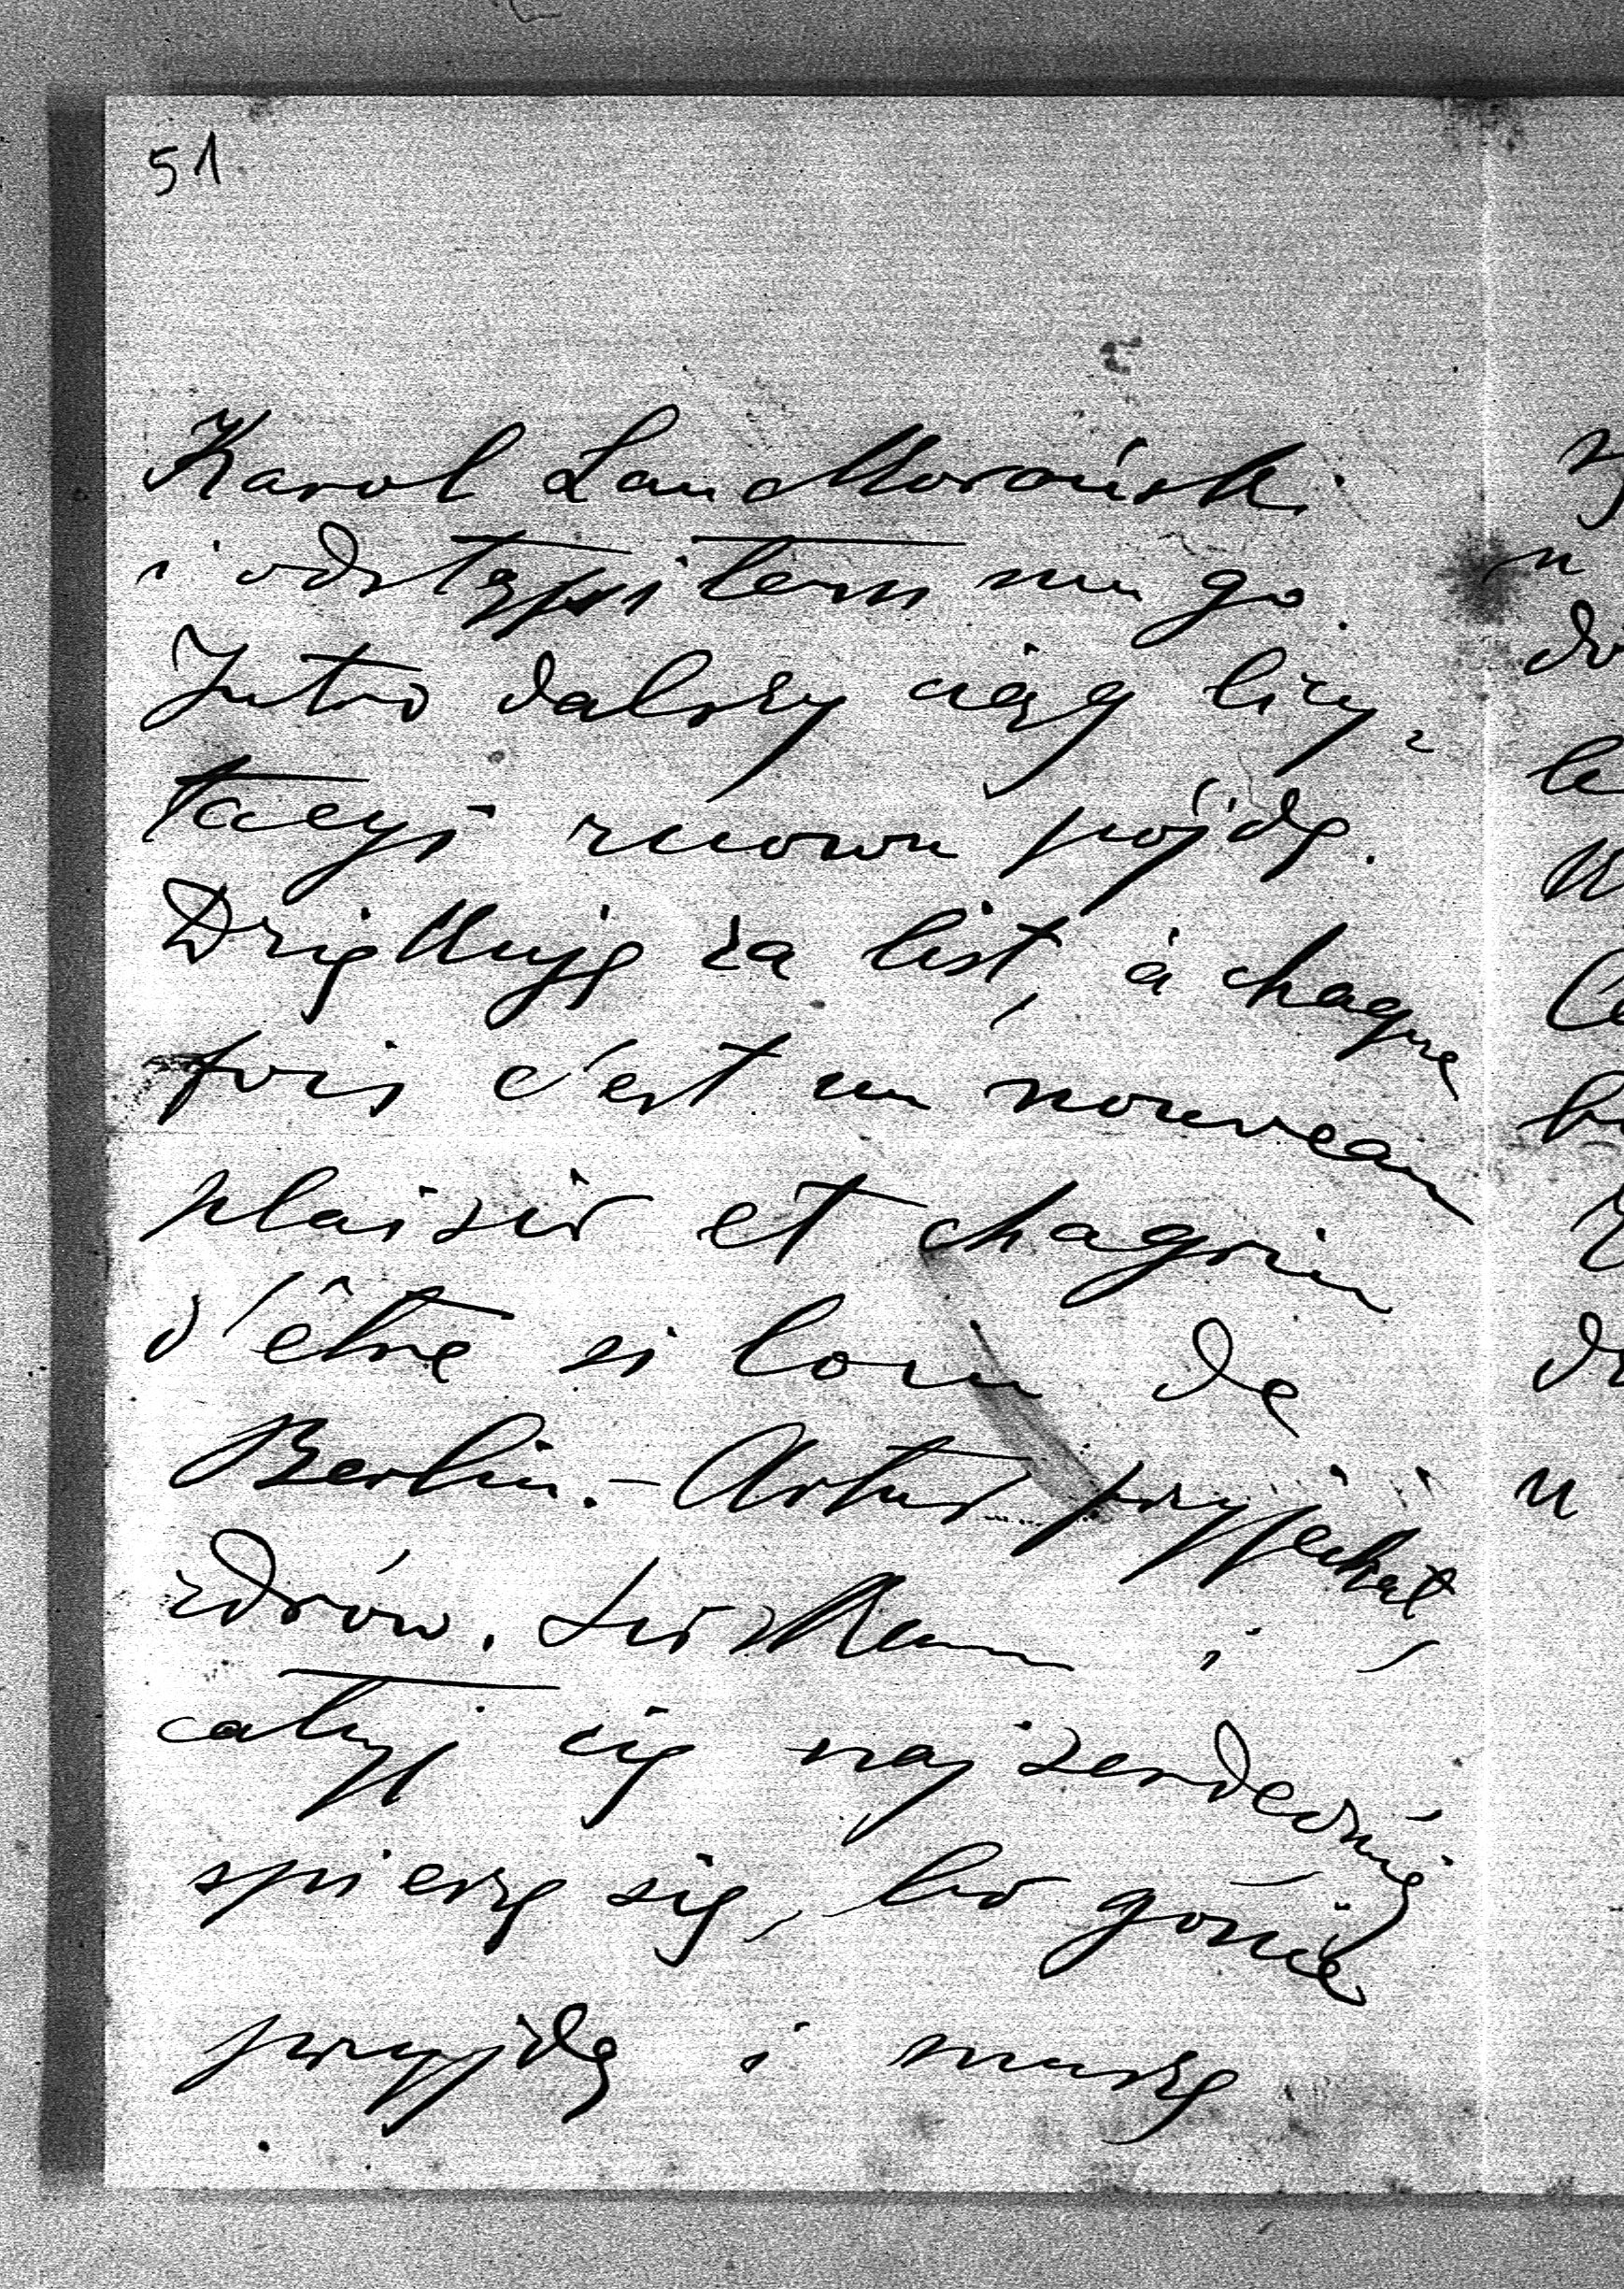 51
Karol Lanckoroński
i odstąpiłem mu go.
Jutro dalszy ciąg licy-
tacyi znowu pójdę.
Dziękuję za list, à chaque
fois c'est un nouveau
plaisir et chagrin
d'être si loin de
Berlin. - Artur przyjechał
zdrów. i
całuję cię najserdeczniej
spieszę się, bo goście
przyjdą i muszę